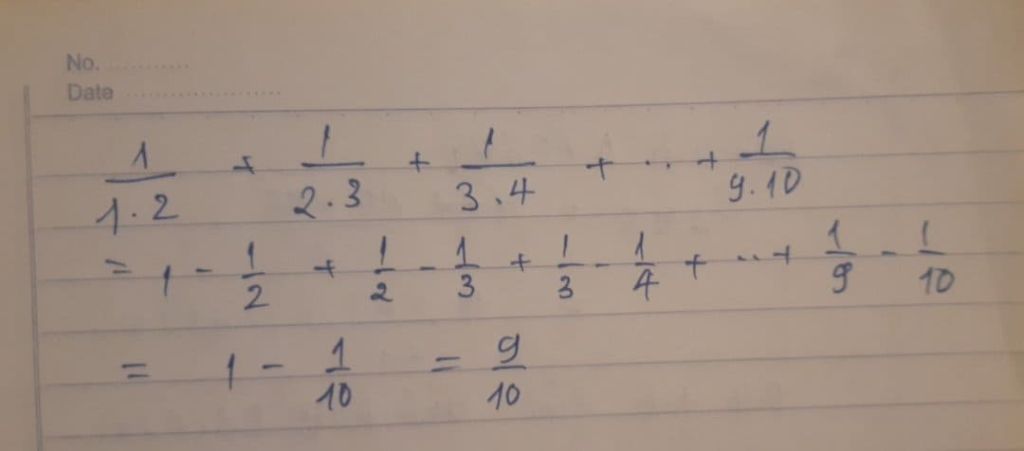 No. ............
Date ......................
1/1.2 + 1/2.3 + 1/3.4 + .. + 1/9.10
= 1 - 1/2 + 1/2 - 1/3 + 1/3 - 1/4 + .. + 1/9 - 1/10
= 1 - 1/10 = 9/10